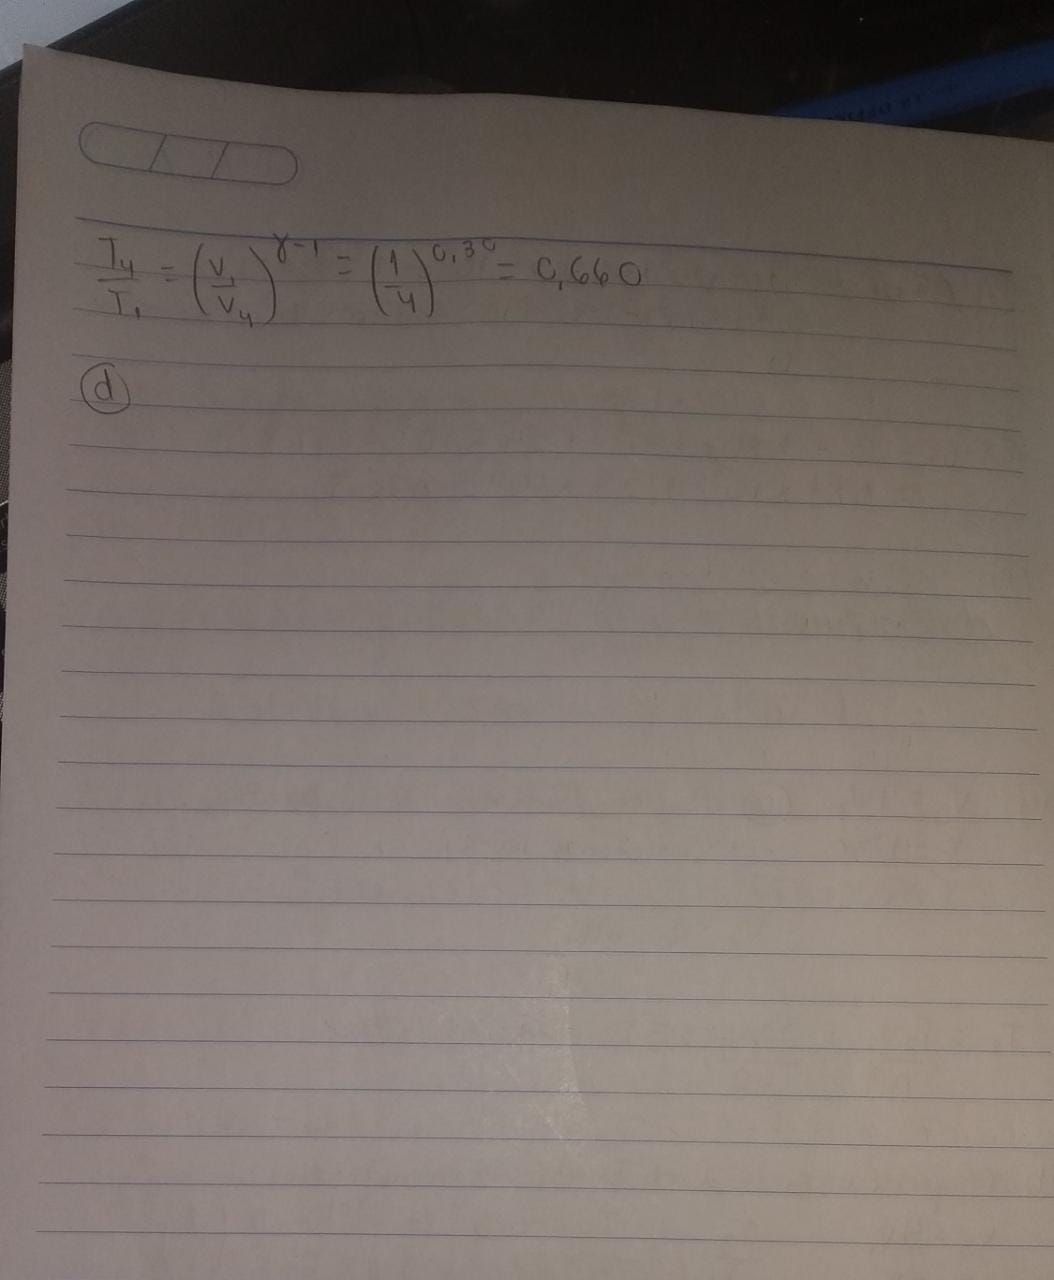 T₄/T₁ = (V₁/V₄)^γ-1 = (1/4)^0,30 = 0,660
d